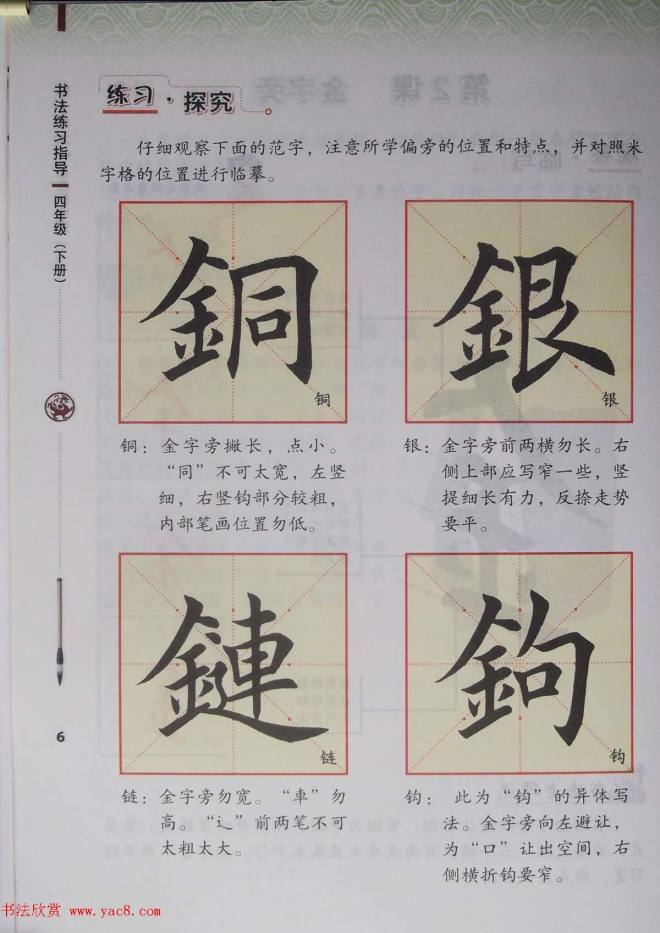 书法练习指导
四年级（下册）
6
练习·探究
仔细观察下面的范字，注意所学偏旁的位置和特点，并对照米
字格的位置进行临摹。
銅
铜
銀
银
铜：金字旁撇长，点小。
“同”不可太宽，左竖
细，右竖钩部分较粗，
内部笔画位置勿低。
银：金字旁前两横勿长。右
侧上部应写窄一些，竖
提细长有力，反捺走势
要平。
鏈
链
鉤
钩
链：金字旁勿宽。“車”勿
高。“辶”前两笔不可
太粗太大。
钩：此为“钩”的异体写
法。金字旁向左避让，
为“口”让出空间，右
侧横折钩要窄。
书法欣赏 www.yac8.com